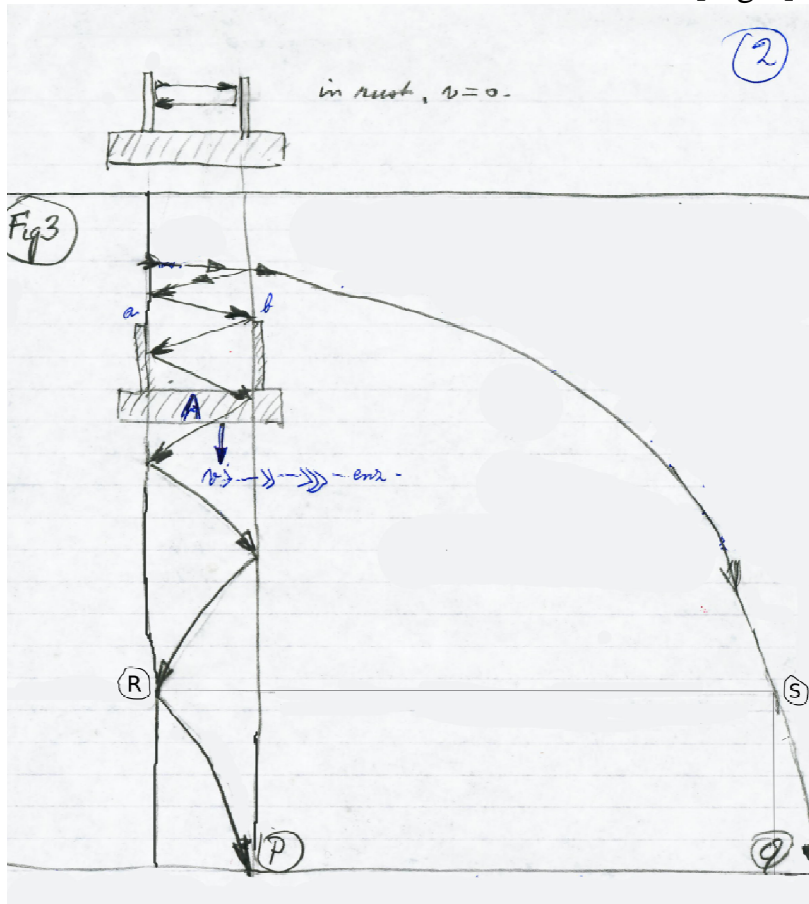 2
in rust, v=0.
Fig3
a
b
A
v
enz -
R
S
P
Q